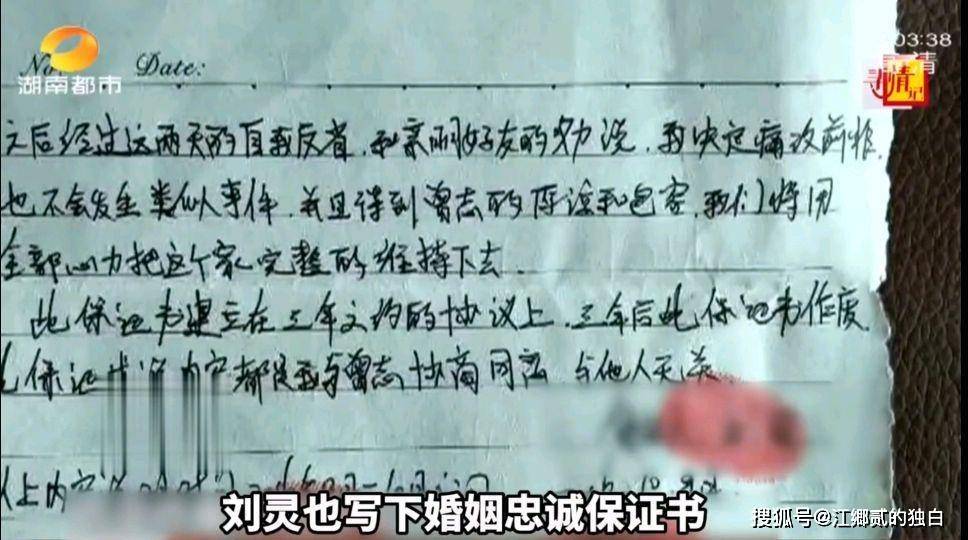 03:38
高清
湖南都市
No
Date:
之后经过这两天的自我反省，和亲朋好友的劝说，我决定痛改前非，
也不会发生类似事件，并且得到曾志的原谅和包容，我们将用
全部心力把这个家完整的维持下去。
此保证书建立在三年之约的协议上，三年后此保证书作废
保证 内容都是我与曾志协商同意 与他人无关
以上内容
刘灵也写下婚姻忠诚保证书
搜狐号@江鄉贰的独白